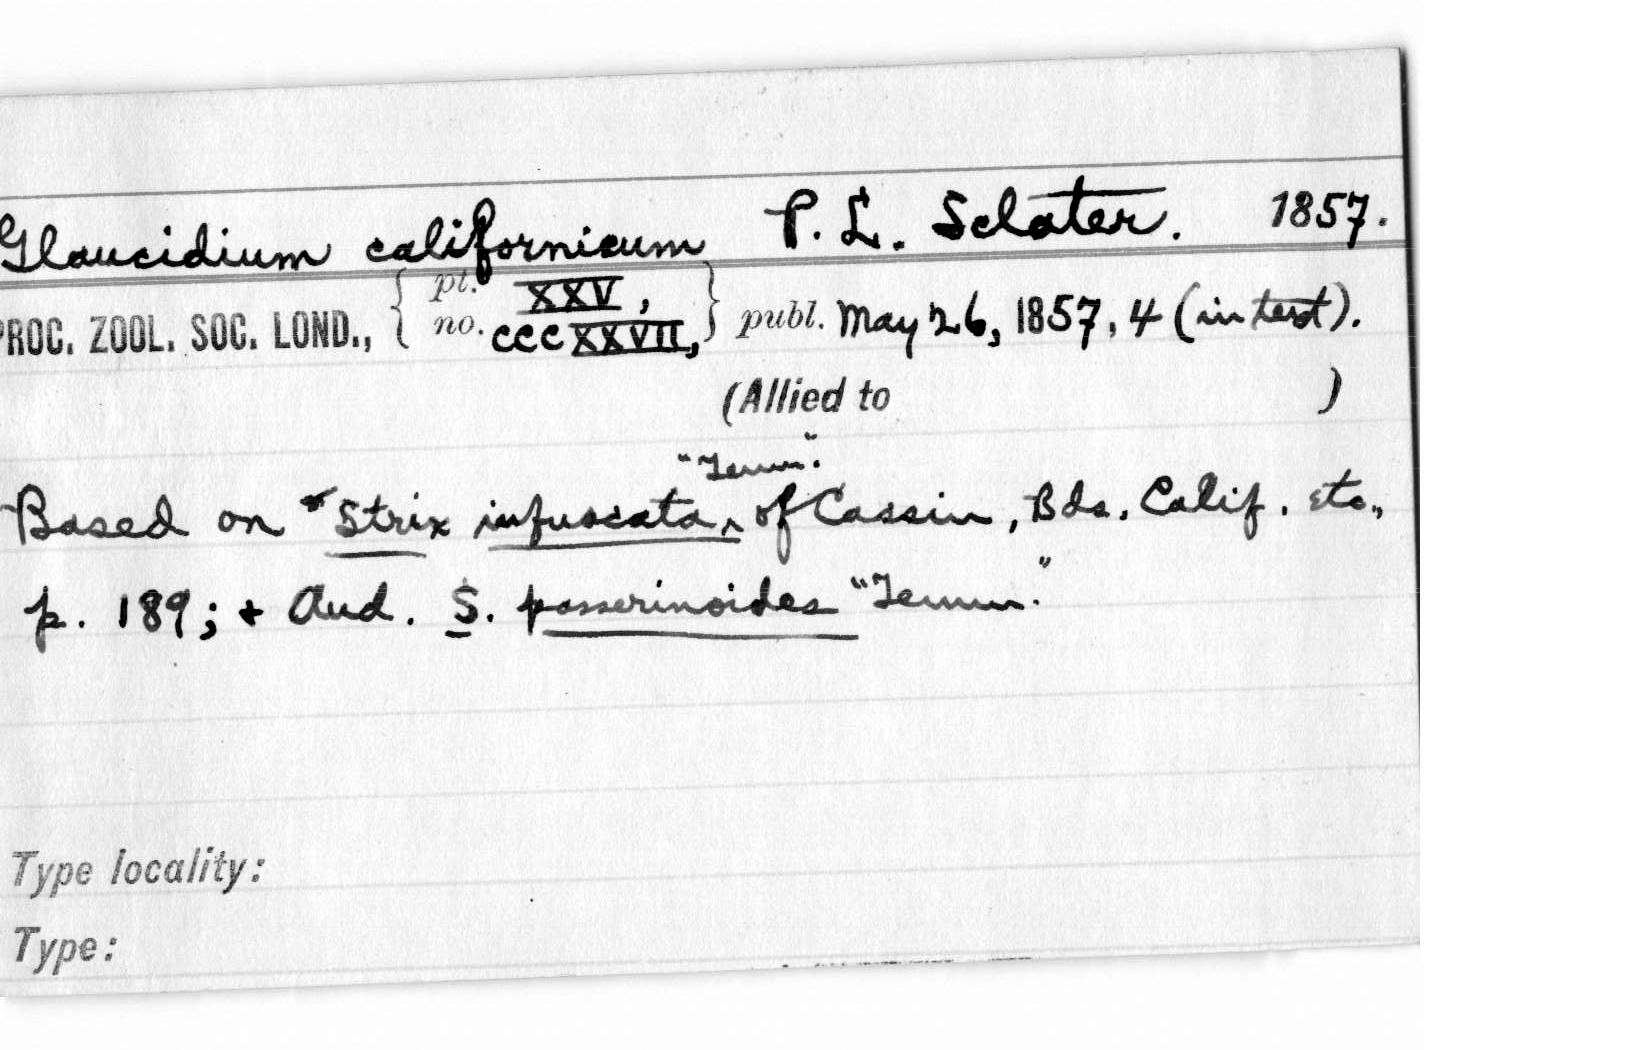 Glaucidium californicum P. L. Sclater. 1857.
PROC. ZOOL. SOC. LOND., { pt. XXV, no. CCCXXVII, } publ. May 26, 1857, 4 (in text).
(Allied to )
"Temm."
Based on Strix infuscata, ^ of Cassin, Bds. Calif. etc.,
p. 189; + Aud. S. passerinoides "Temm."
Type locality:
Type: